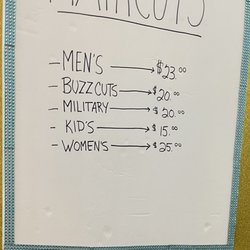 HAIRCUTS
- MEN'S → $23.00
- BUZZCUTS → $20.00
- MILITARY → $20.00
- KID'S → $15.00
- WOMEN'S → $25.00